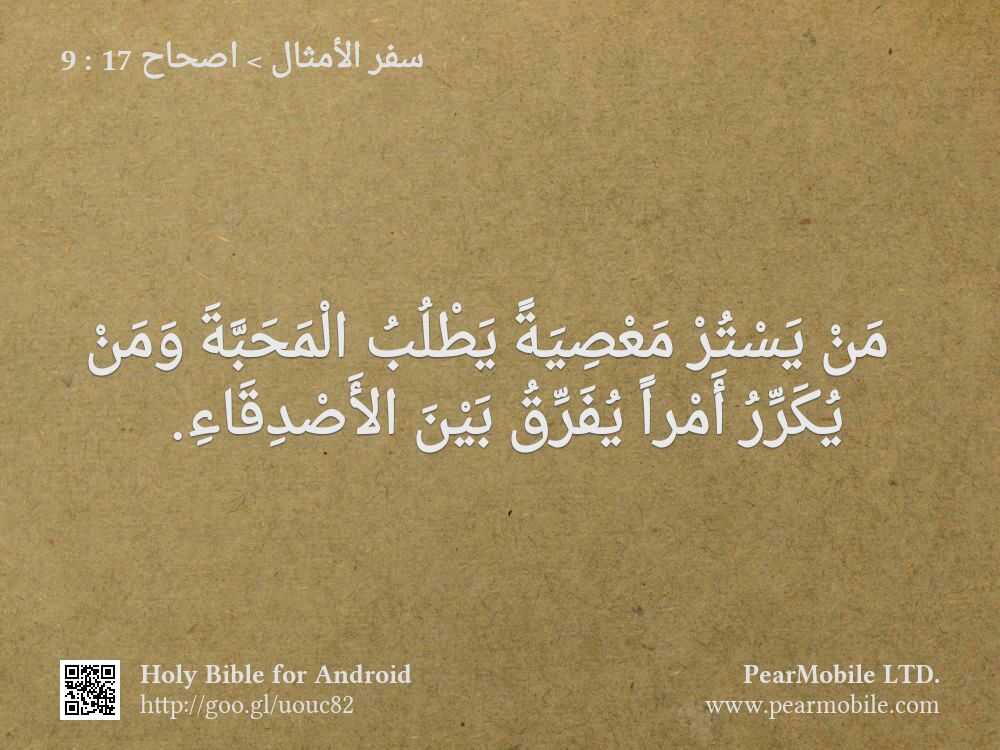 سفر الأمثال > اصحاح 17 : 9
مَنْ يَسْتُرْ مَعْصِيَةً يَطْلُبُ الْمَحَبَّةَ وَمَنْ
يُكَرِّرُ أَمْراً يُفَرِّقُ بَيْنَ الأَصْدِقَاءِ.
Holy Bible for Android
http://goo.gl/uouc82
PearMobile LTD.
www.pearmobile.com